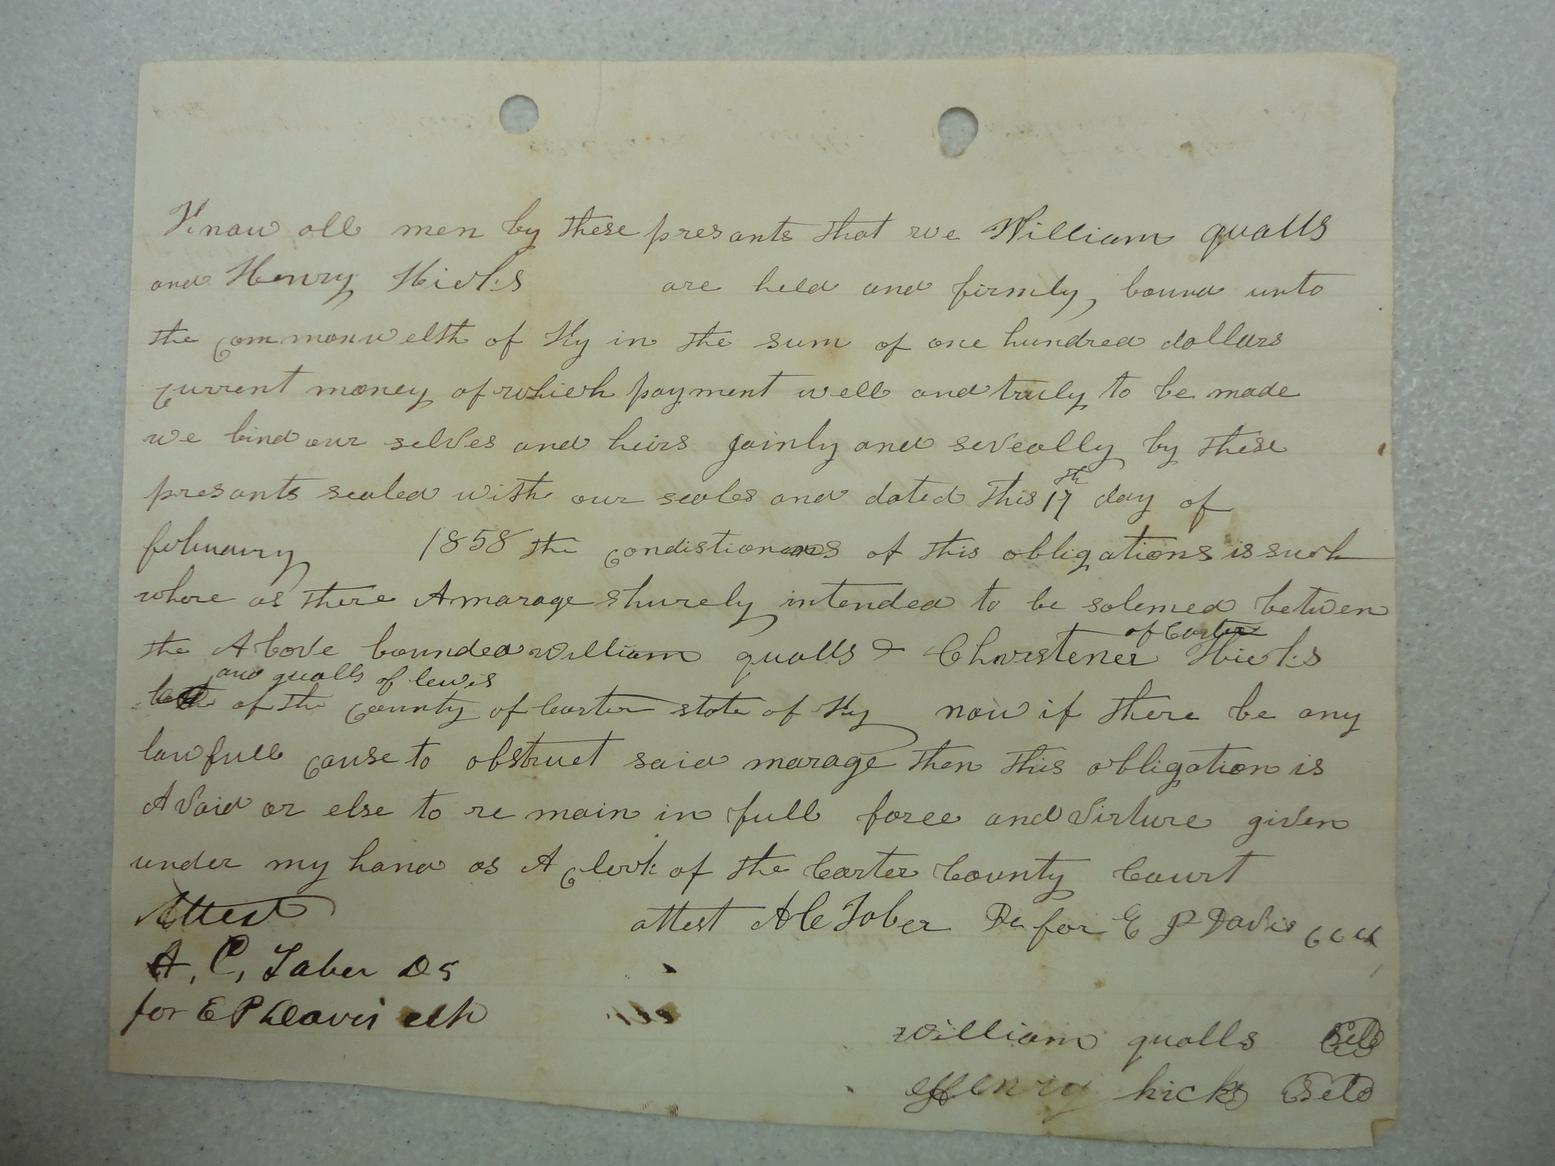 Know all men by these presants that we William qualls
and Henry Hicks are held and firmly, bound unto
the commonwelth of Ky in the sum of one hundred dollars
current money of which payment well and truly to be made
we bind our selves and heirs joinly and seveally by these
presants sealed with our seales and dated this 17th day of
febuary 1858 the condistionons of this obligations is such
where as there A marage shurely intended to be solemed betwen
the Above bounded william qualls & Christener Hicks
of Carter
and qualls of lewis
of the county of Carter state of Ky now if there be any
lawfull cause to obstruct said marage then this obligation is
A void or else to re main in full force and virture given
under my hand as A clerk of the Carter County Court
Attest attest A C Tober Dc for E P Davis CCC
A, C, Taber DC
for E P Davis clk
william qualls Sele
Henry hicks Sele